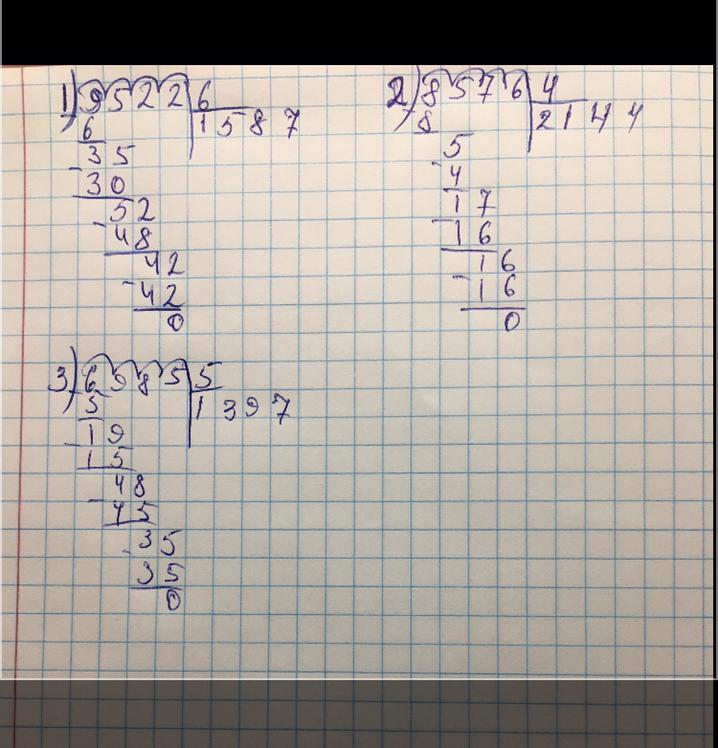 1) 9522 6
6 1587
35
- 30
52
- 48
42
- 42
0
2) 8576 4
8 2144
5
- 4
17
- 16
16
- 16
0
3) 6985 5
5 1397
19
- 15
48
- 45
35
- 35
0